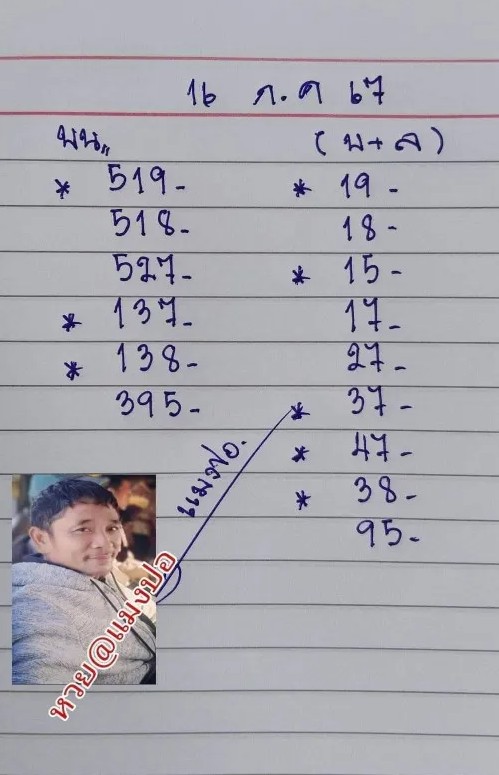 16 ก.ค 67
บน,, (บ+ล)
* 519- * 19-
518- 18-
527- * 15-
* 137- 17-
* 138- 27-
395- * 37-
* 47-
* 38-
95-
แมงปอ.
หวย@แมงปอ